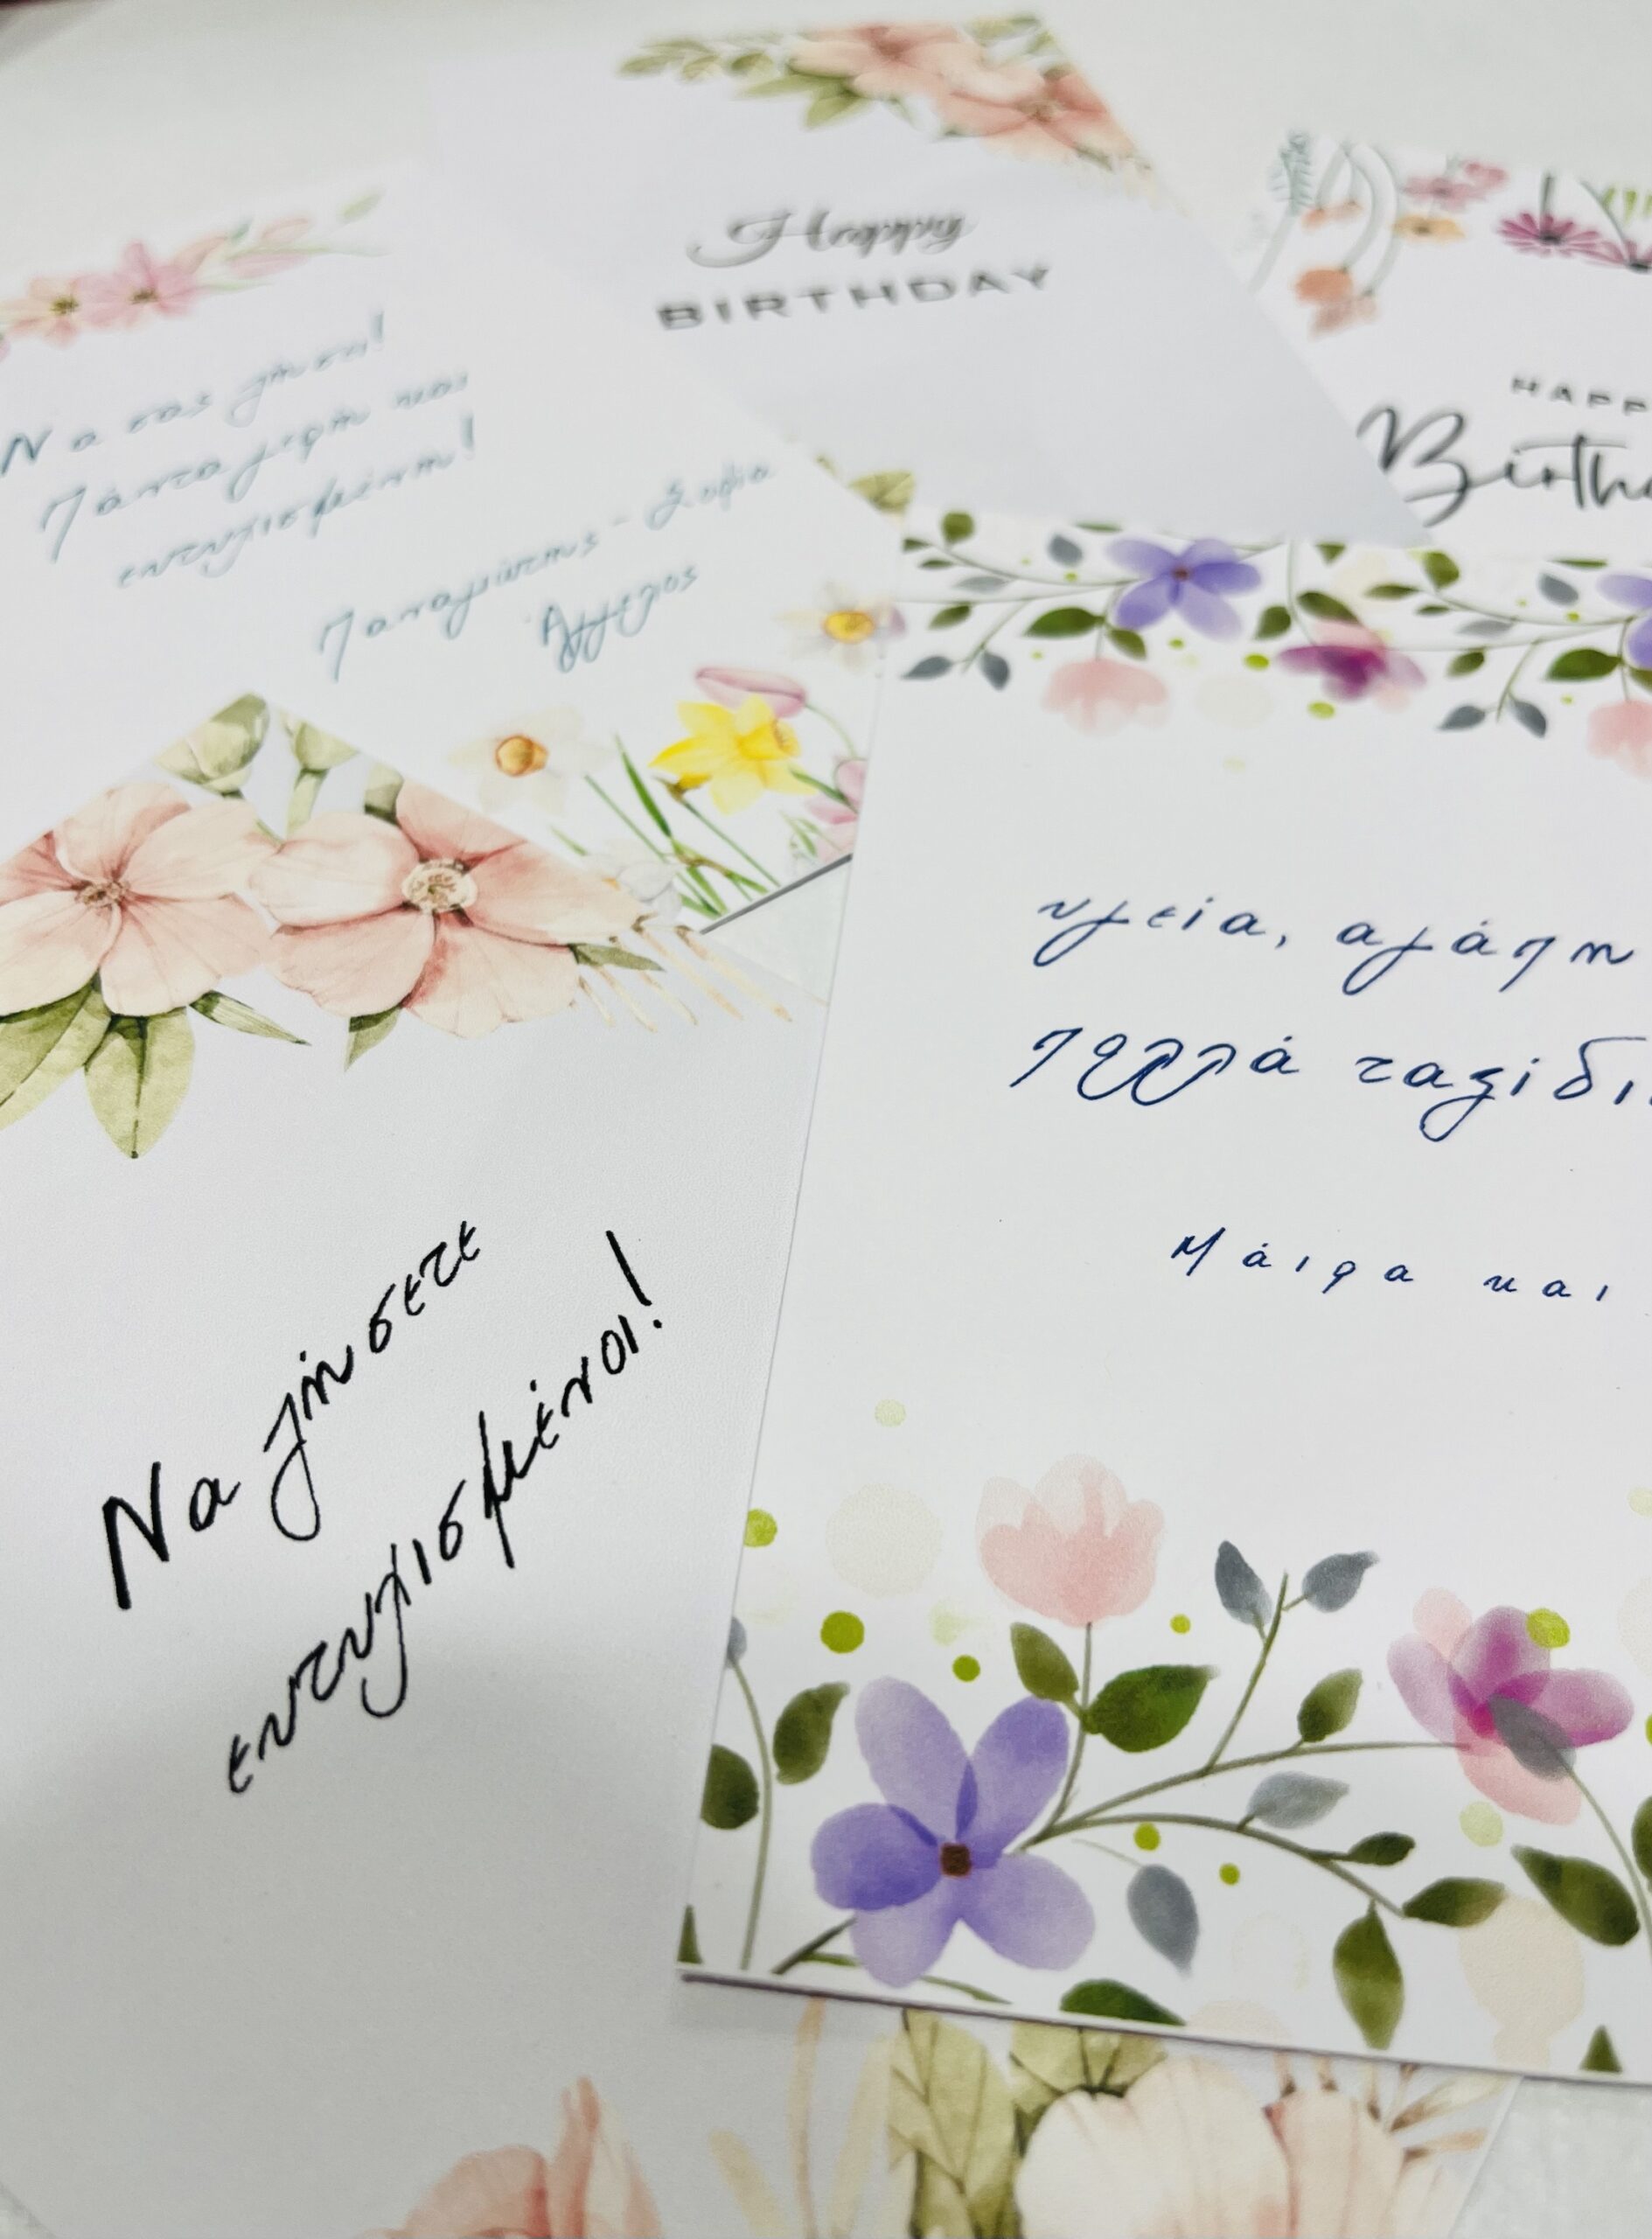 Happy
BIRTHDAY
HAPP
Birth
Να σας ζήσει!
Πάντα γερή και
ευτυχισμένη!
Παναγιώτης - Σοφία
Άγγελος
υγεία, αγάπη
πολλά ταξίδι
Μάιρα και
Να ζήσετε
ευτυχισμένοι!